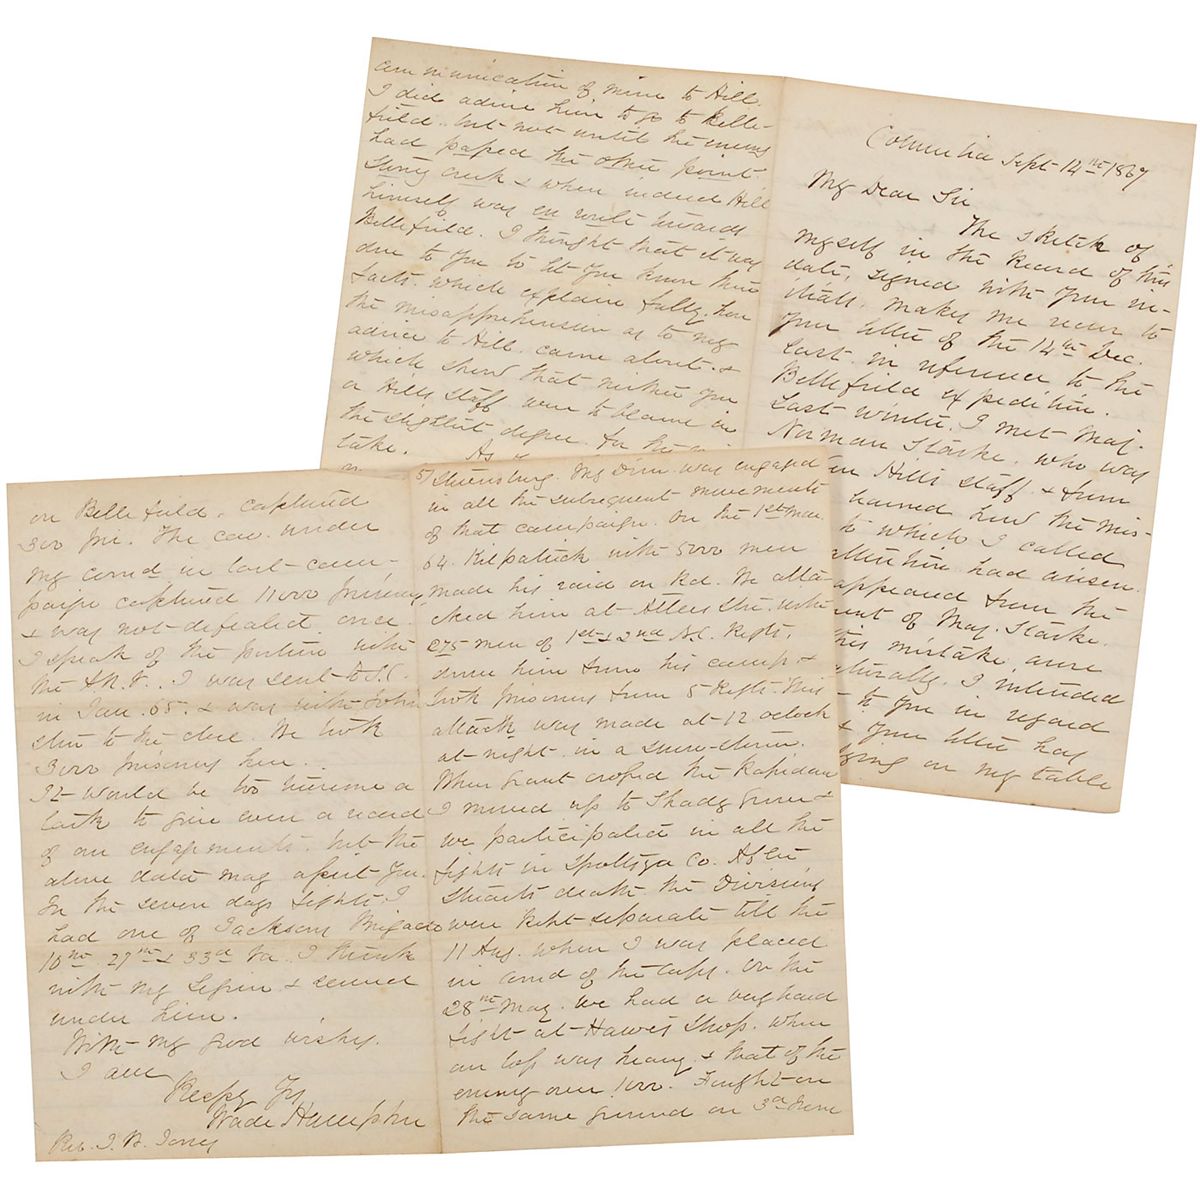 Columbia Sept 14th 1867
My Dear Sir
The sketch of
myself in the Record of this
date, signed with your in-
itials, makes me recur to
your letter of the 14th Dec.
last in reference to the
Bellefield expedition.
Last winter I met Maj.
Norman Starke, who was
on Hills staff & from
learned how the mis-
to which I called
attention had arisen.
appeared from the
ment of Maj. Starke.
this mistake arose
naturally. I intended
to you in regard
& your letter has
lying on my table
communication of mine to Hill.
I did advise him to go to Belle-
field, but not until the enemy
had passed the other point.
Stony Creek & when indeed Hill
himself was en route towards
Bellefield. I thought that it was
due to you to let you know these
facts, which explain fully, how
the misapprehension as to my
advice to Hill, came about. &
which show that neither you
or Hills staff were to blame in
the slightest degree, for the mis
take. As
5/ Stevensburg. My Divn. was engaged
in all the subsequent movements
of that campaign. On the 1st Mar.
64. Kilpatrick with 5000 men
made his raid on Rd. We atta-
cked him at Atlees Stn. with
275 men of 1st & 2nd N.C. Regts,
drove him from his camp &
took prisoners from 5 Regts. This
attack was made at 12 oclock
at night. in a snow-storm.
When Grant crossed the Rapidan
I moved up to Shady Grove &
we participated in all the
fights in Spottsya Co. After
Stuarts death the Divisions
were kept separate till the
11 Aug. when I was placed
in comd of the Corps. On the
28th May. we had a very hard
fight at Hawes Shop. when
our loss was heavy, & that of the
enemy over 1000. Fought on
the same ground on 3rd June
on Bellefield, captured
300 pris. The cav. under
my comd in last cam-
paign captured 11000 prisoners
& was not defeated once.
I speak of the portion with
the A.N.V. I was sent to S.C.
in Jan. 65. & was with John-
ston to the close. We took
3000 prisoners here.
It would be too tiresome a
task to give even a record
of our engagements. but the
above data may assist you.
In the seven days fights, I
had one of Jacksons Brigades
10th 27th & 33d Va. I think
with my Legion & served
under him.
With my good wishes.
I am
Respy Yrs
Wade Hampton
Rev. J. W. Jones